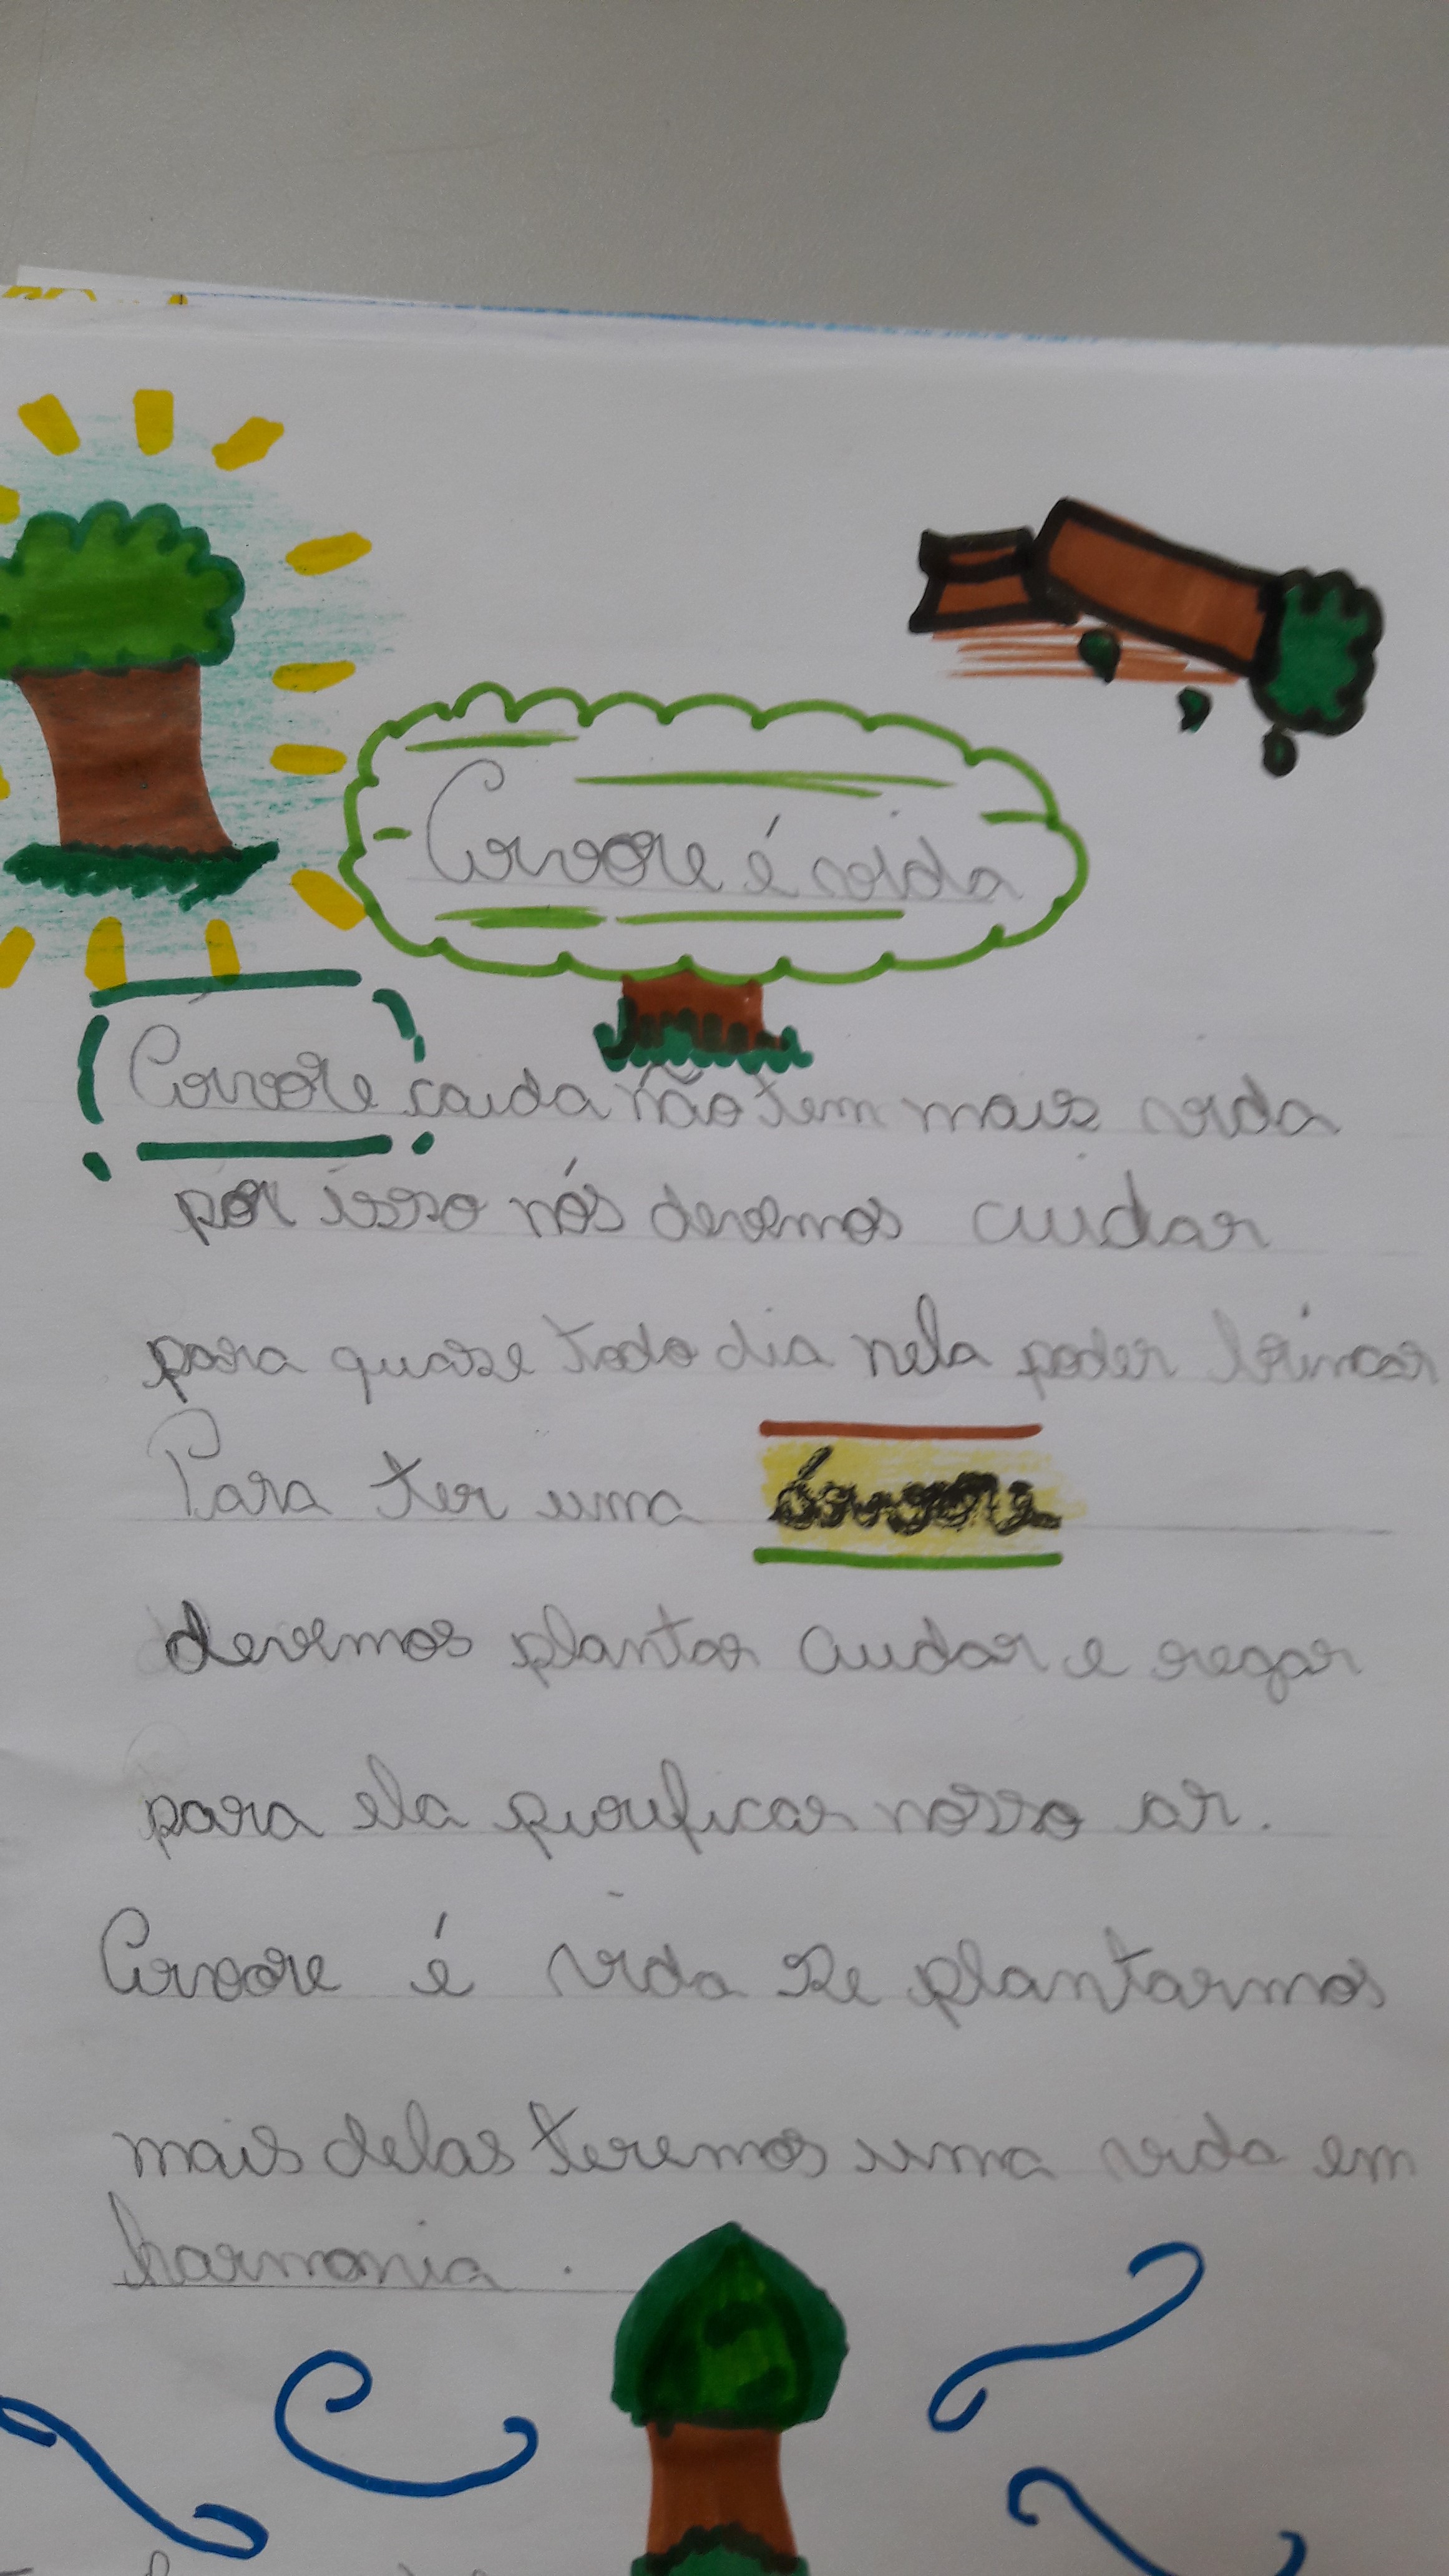 Arvore é vida
Árvore caida não tem mais vida
por isso nós devemos cuidar
para quase todo dia nela poder brincar
Para ter uma árvore
devemos plantar cuidar e regar
para ela purificar nosso ar.
Arvore é vida se plantarmos
mais delas teremos uma vida em
harmonia.